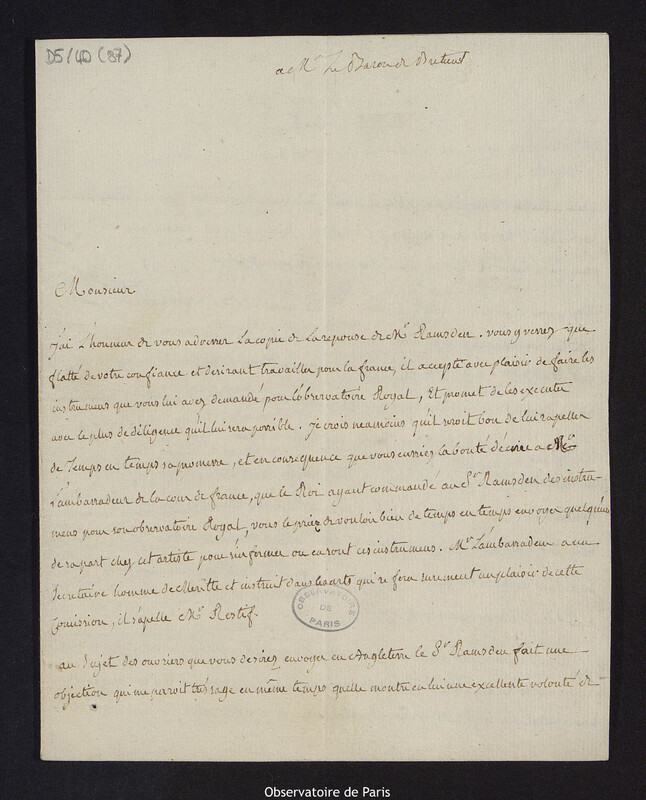 D5/40 (87)
a Mr Le Baron de Breteuil
Monsieur
J'ai L'honneur de vous adresser La copie de La reponse de Mr Ramsden. vous y verrez que
flatté de votre confiance et desirant travailler pour la france, il accepte avec plaisir de faire les
instrumens que vous lui avez demandé pour L'observatoire Royal, Et promet de les executer
avec le plus de diligence qu'il lui sera possible. Je crois neamoins qu'il seroit bon de lui rapeller
de Temps en temps sa promesse, et en consequence que vous eussiez la bonté décrire a Mr
L'ambassadeur de la cour de france, que le Roi ayant commandé au Sr Ramsden des instru-
mens pour son observatoire Royal, vous le priez de vouloir bien de temps en temps envoyer quelqu'un
de sa part chez cet artiste pour s'informer ou en sont ces instrumens. Mr L'ambassadeur a un
Secretaire homme de Meritte et instruit dans les arts qui se fera surement un plaisir de cette
Comission, il s'apelle Mr Restif.
OBSERVATOIRE DE PARIS
au Sujet des ouvriers que vous desirez envoyer en Angleterre le Sr Ramsden fait une
objection qui me paroit très sage en même temps quelle montre en lui une excellente volonté de
Observatoire de Paris